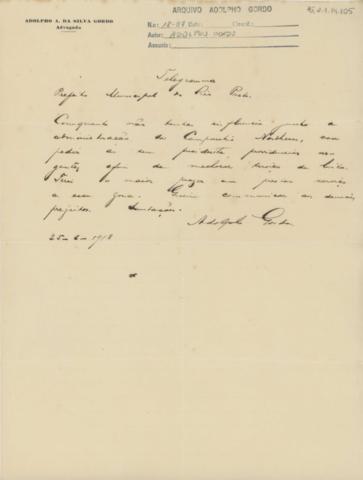 ADOLPHO A. DA SILVA GORDO
Advogado
ARQUIVO ADOLPHO GORDO
No: Data: Cwxcd:
Autor: ADOLPHO GORDO
Assunto:
Telegramma
Prefeito Municipal de Rio Preto.
Comquanto não tenha influencia junto a
administração da Companhia Northern, vou
pedir a seu presidente providencias ur-
gentes, afim de melhorar serviço de
Terei o maior prazer em prestar serviço
a essa zona. Queira communicar aos demais
prefeitos. Saudações.
Adolpho Gordo
25-2-1918